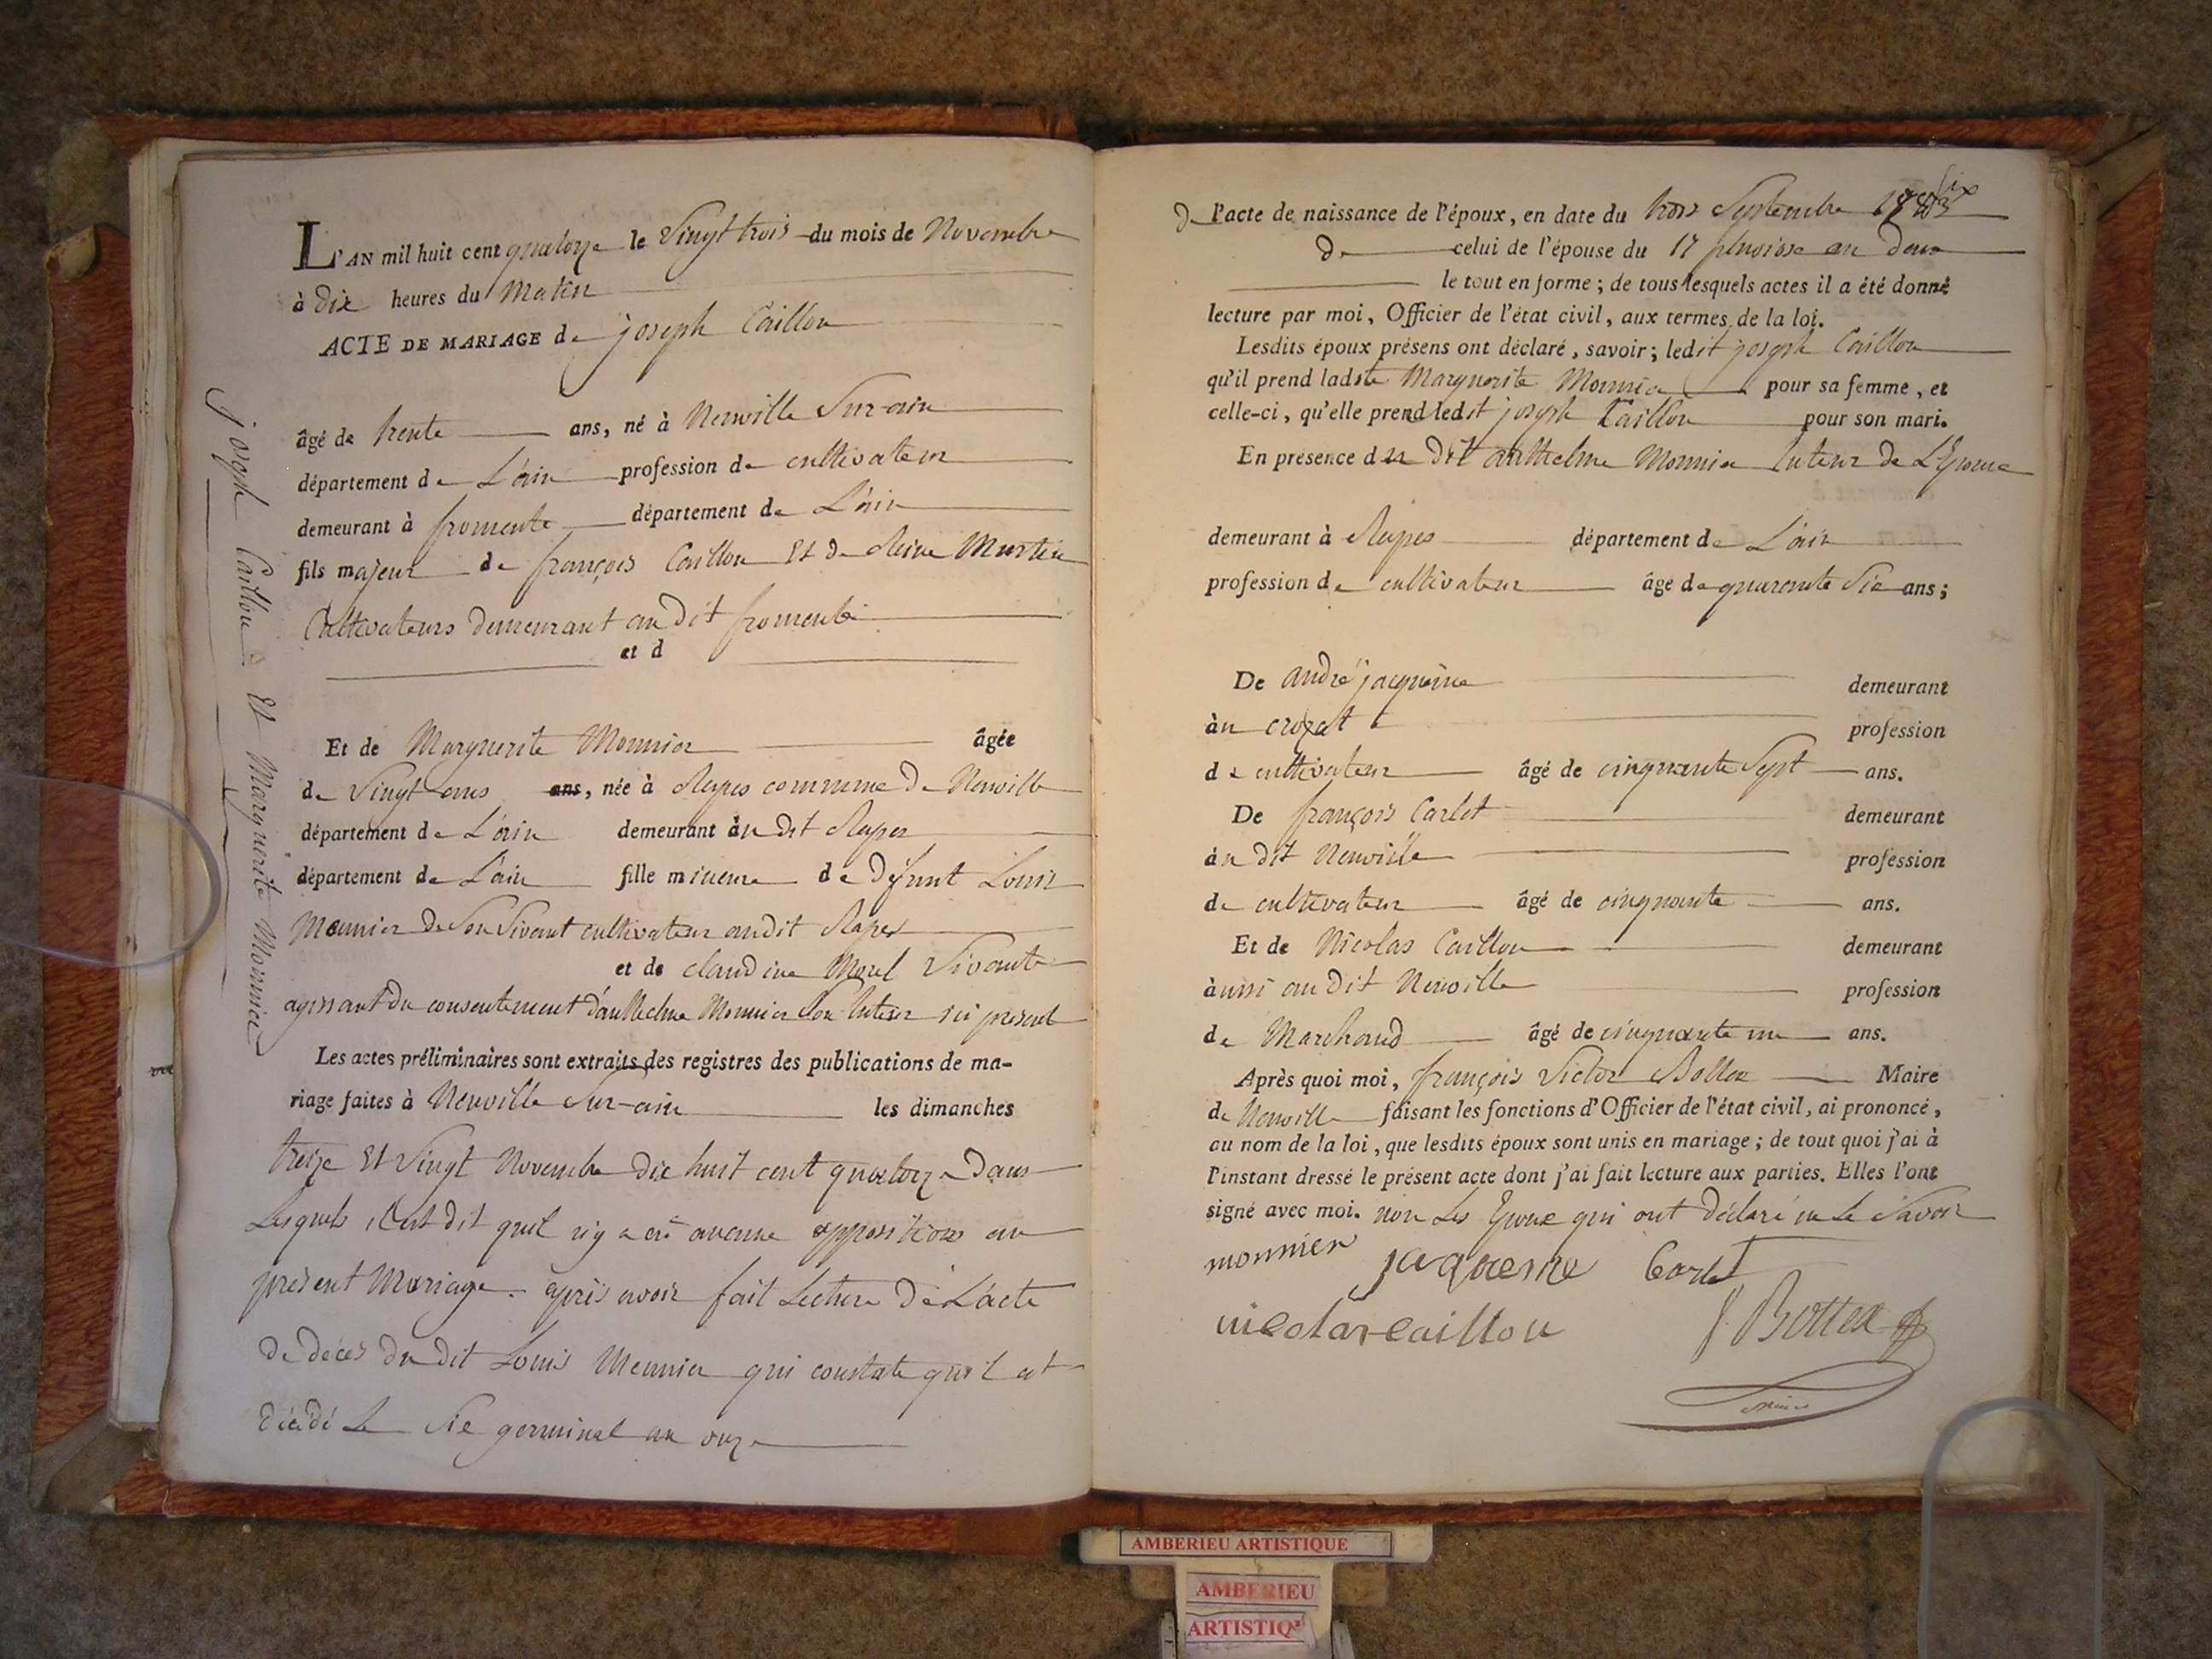 L'AN mil huit cent quatorze le Vingt trois du mois de Novembre
à Dix heures du Matin
ACTE DE MARIAGE de joseph Caillou
âgé de trente ans, né à Neuville Sur-ain
département de L'ain profession de cultivateur
demeurant à fromente département de L'ain
fils majeur de françois Caillou Et de Reine Martin
Cultivateurs demeurant au dit fromente
et d
Et de Marguerite Monnier âgée
de Vingt ans ans, née à Rapes commune de Neuville
département de L'ain demeurant àu dit Rapes
département de L'ain fille mineure de Défunt Louis
Meunier de Son Vivant cultivateur audit Rapes
et de claudine Morel Vivante
agissant du consentement d'anthelme Monnier Son tuteur ici présent
Les actes préliminaires sont extraits des registres des publications de ma-
riage faites à Neuville Sur-ain les dimanches
treize Et Vingt Novembre dix huit cent quatorze Dans
Lesquels il est dit quil n'y a eû aucune opposition au
présent Mariage. après avoir fait Lecture De L'acte
De décès du dit Louis Meunier qui constate qu'il est
Décédé Le Six germinal an onze
joseph Caillou Et Marguerite Monnier
D l'acte de naissance de l'époux, en date du trois Septembre
De celui de l'épouse du 17 pluviose an Deux
le tout en forme ; de tous lesquels actes il a été donné
lecture par moi, Officier de l'état civil, aux termes de la loi.
Lesdits époux présens ont déclaré, savoir ; ledit joseph Caillou
qu'il prend ladite Marguerite Monnier pour sa femme, et
celle-ci, qu'elle prend ledit joseph Caillou pour son mari.
En présence du Dit anthelme Monnier tuteur de L'Epouse
demeurant à Rapes département de L'ain
profession de cultivateur âgé de quarante Six ans ;
De andré jacqueme demeurant
àu crozat profession
de cultivateur âgé de cinquante Sept ans.
De françois Carlet demeurant
àu dit Neuville profession
de cultivateur âgé de cinquante ans.
Et de Nicolas Caillou demeurant
àussi au Dit Neuville profession
de Marchand âgé de cinquante un ans.
Après quoi moi, françois Victor Bottex Maire
de Neuville faisant les fonctions d'Officier de l'état civil, ai prononcé,
au nom de la loi, que lesdits époux sont unis en mariage ; de tout quoi j'ai à
l'instant dressé le présent acte dont j'ai fait lecture aux parties. Elles l'ont
signé avec moi. non Les Epoux qui ont déclaré ne Le Savoir
monnier jaqueme Carlet
nicolas caillou Bottex
AMBERIEU ARTISTIQUE
AMBERIEU
ARTISTIQ